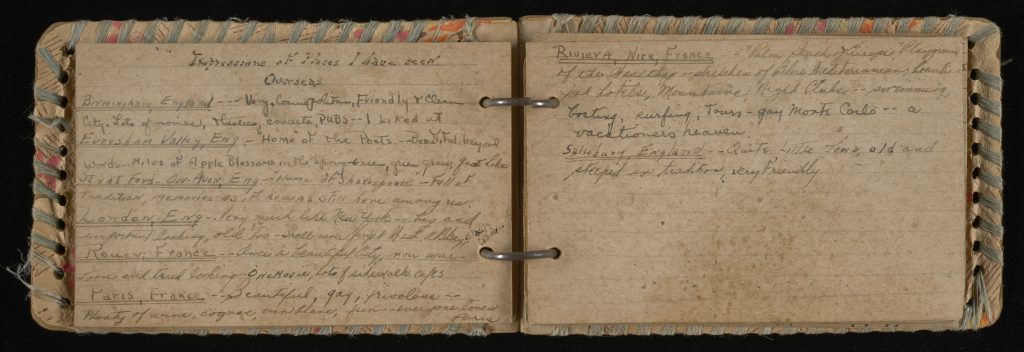 "Impressions of Places I have seen
Overseas
Birmingham, England --- Very Cosmopolitan, Friendly & Clean
City. Lots of movies, theatres, concerts PUBS -- I liked it
Eversham Valley, Eng - Home of the Poets -- Beautiful beyond
words - Miles of Apple Blossoms in the Spring - Green, green grass,
Stratford-On-Avon, Eng - Home of Shakespeare - Full of
Tradition, memories as if he was still here among us.
London, Eng. - Very much like New York -- big and
important looking, old too --
Rouen, France --- Once a beautiful City, now war-
torn and tired looking - One Movie, lots of sidewalk cafes
Paris, France -- Beautiful, gay, frivolous --
Plenty of wine, cognac, vin blanc, fun -- everyone loves
Paris
Riviera, Nice, France - "Palm Beach of Europe", Playground
of the Wealthy - stretches of Blue Mediterranean, beauti-
ful hotels, Mountains, Night Clubs -- swimming,
boating, surfing, Tours - gay Monte Carlo -- a
vacationer's heaven.
Salisbury, England -- Quite little Town, old and
steeped in tradition, very friendly